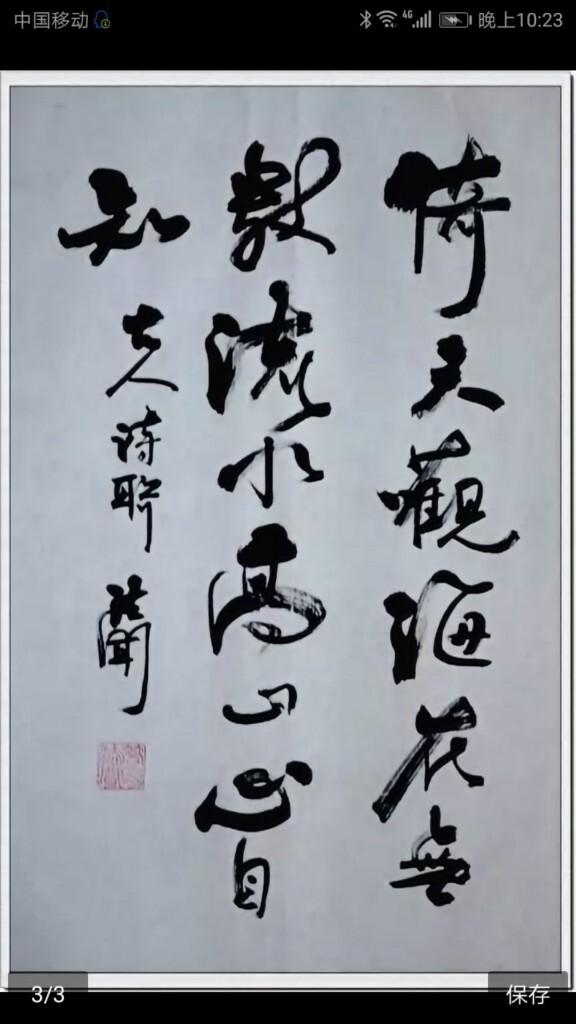 中国移动 4G 晚上10:23
倚天觀海花無
數流水高山心自
知
古人诗联
3/3 保存